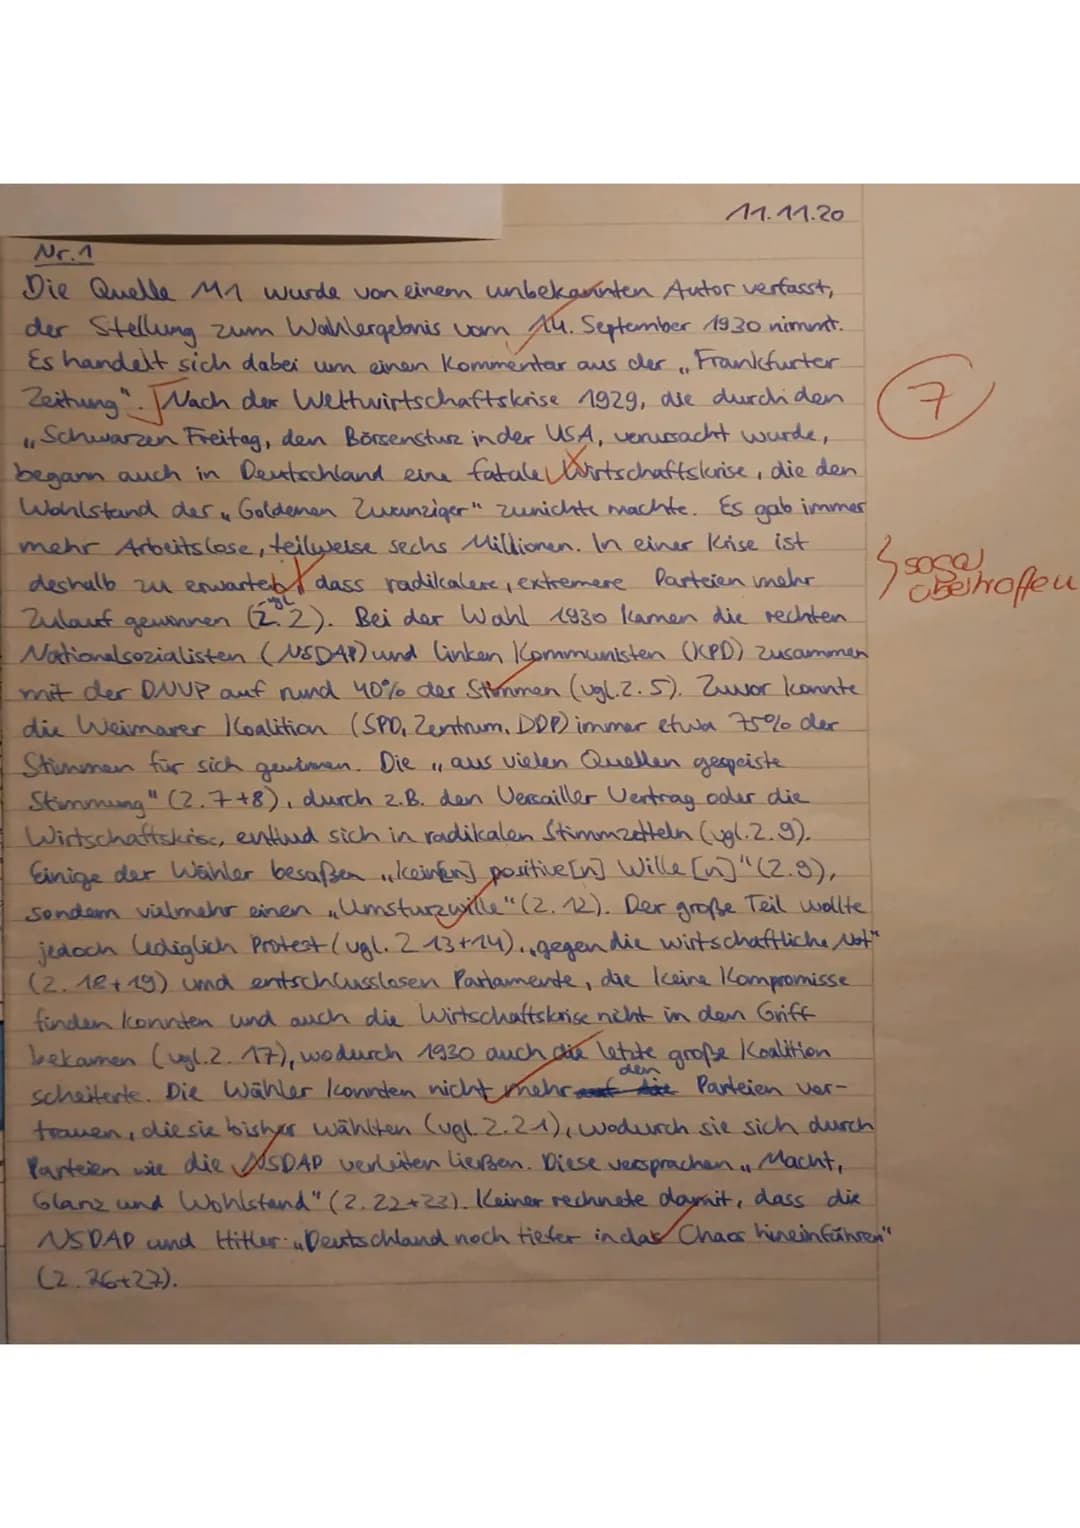 11.11.20
Nr.1
Die Quelle M1 wurde von einem unbekannten Autor verfasst,
der Stellung zum Wahlergebnis vom 14. September 1930 nimmt.
Es handelt sich dabei um einen Kommentar aus der „Frankfurter
Zeitung". Nach der Weltwirtschaftskrise 1929, die durch den
7
„Schwarzen Freitag, den Börsensturz in der USA, verursacht wurde,
begann auch in Deutschland eine fatale Wirtschaftskrise, die den
Wohlstand der „Goldenen Zwanziger" zunichte machte. Es gab immer
mehr Arbeitslose, teilweise sechs Millionen. In einer Krise ist
deshalb zu erwarten dass radikalere, extremere Parteien mehr
sogar
übertroffen
Zulauf gewinnen (vgl. Z. 2). Bei der Wahl 1930 kamen die rechten
Nationalsozialisten (NSDAP) und linken Kommunisten (KPD) zusammen
mit der DNVP auf rund 40% der Stimmen (vgl. Z. 5). Zuvor konnte
die Weimarer Koalition (SPD, Zentrum, DDP) immer etwa 75% der
Stimmen für sich gewinnen. Die „aus vielen Quellen gespeiste
Stimmung" (Z. 7+8), durch z.B. den Versailler Vertrag oder die
Wirtschaftskrise, entlud sich in radikalen Stimmzetteln (vgl. Z. 9).
Einige der Wähler besaßen „kein[en] positive[n] Wille[n]" (Z. 9),
sondern vielmehr einen „Umsturzwille" (Z. 12). Der große Teil wollte
jedoch lediglich Protest (vgl. Z 13+14) „gegen die wirtschaftliche Not"
(Z. 18+19) und entschlusslosen Parlamente, die keine Kompromisse
finden konnten und auch die Wirtschaftskrise nicht in den Griff
bekamen (vgl. Z. 17), wodurch 1930 auch die letzte große Koalition
scheiterte. Die Wähler konnten nicht mehr den Parteien ver-
trauen, die sie bisher wählten (vgl. Z. 21), wodurch sie sich durch
Parteien wie die NSDAP verleiten ließen. Diese versprachen „Macht,
Glanz und Wohlstand" (Z. 22+23). Keiner rechnete damit, dass die
NSDAP und Hitler „Deutschland noch tiefer in das Chaos hineinführen"
(Z. 26+27).